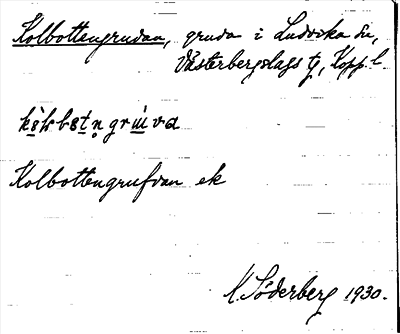 Kolbottengruvan, gruva i Ludvika sn,
Västerbergslags tg, Kopp. l.
Kolbottengrufvan ek
K. Söderberg 1930.